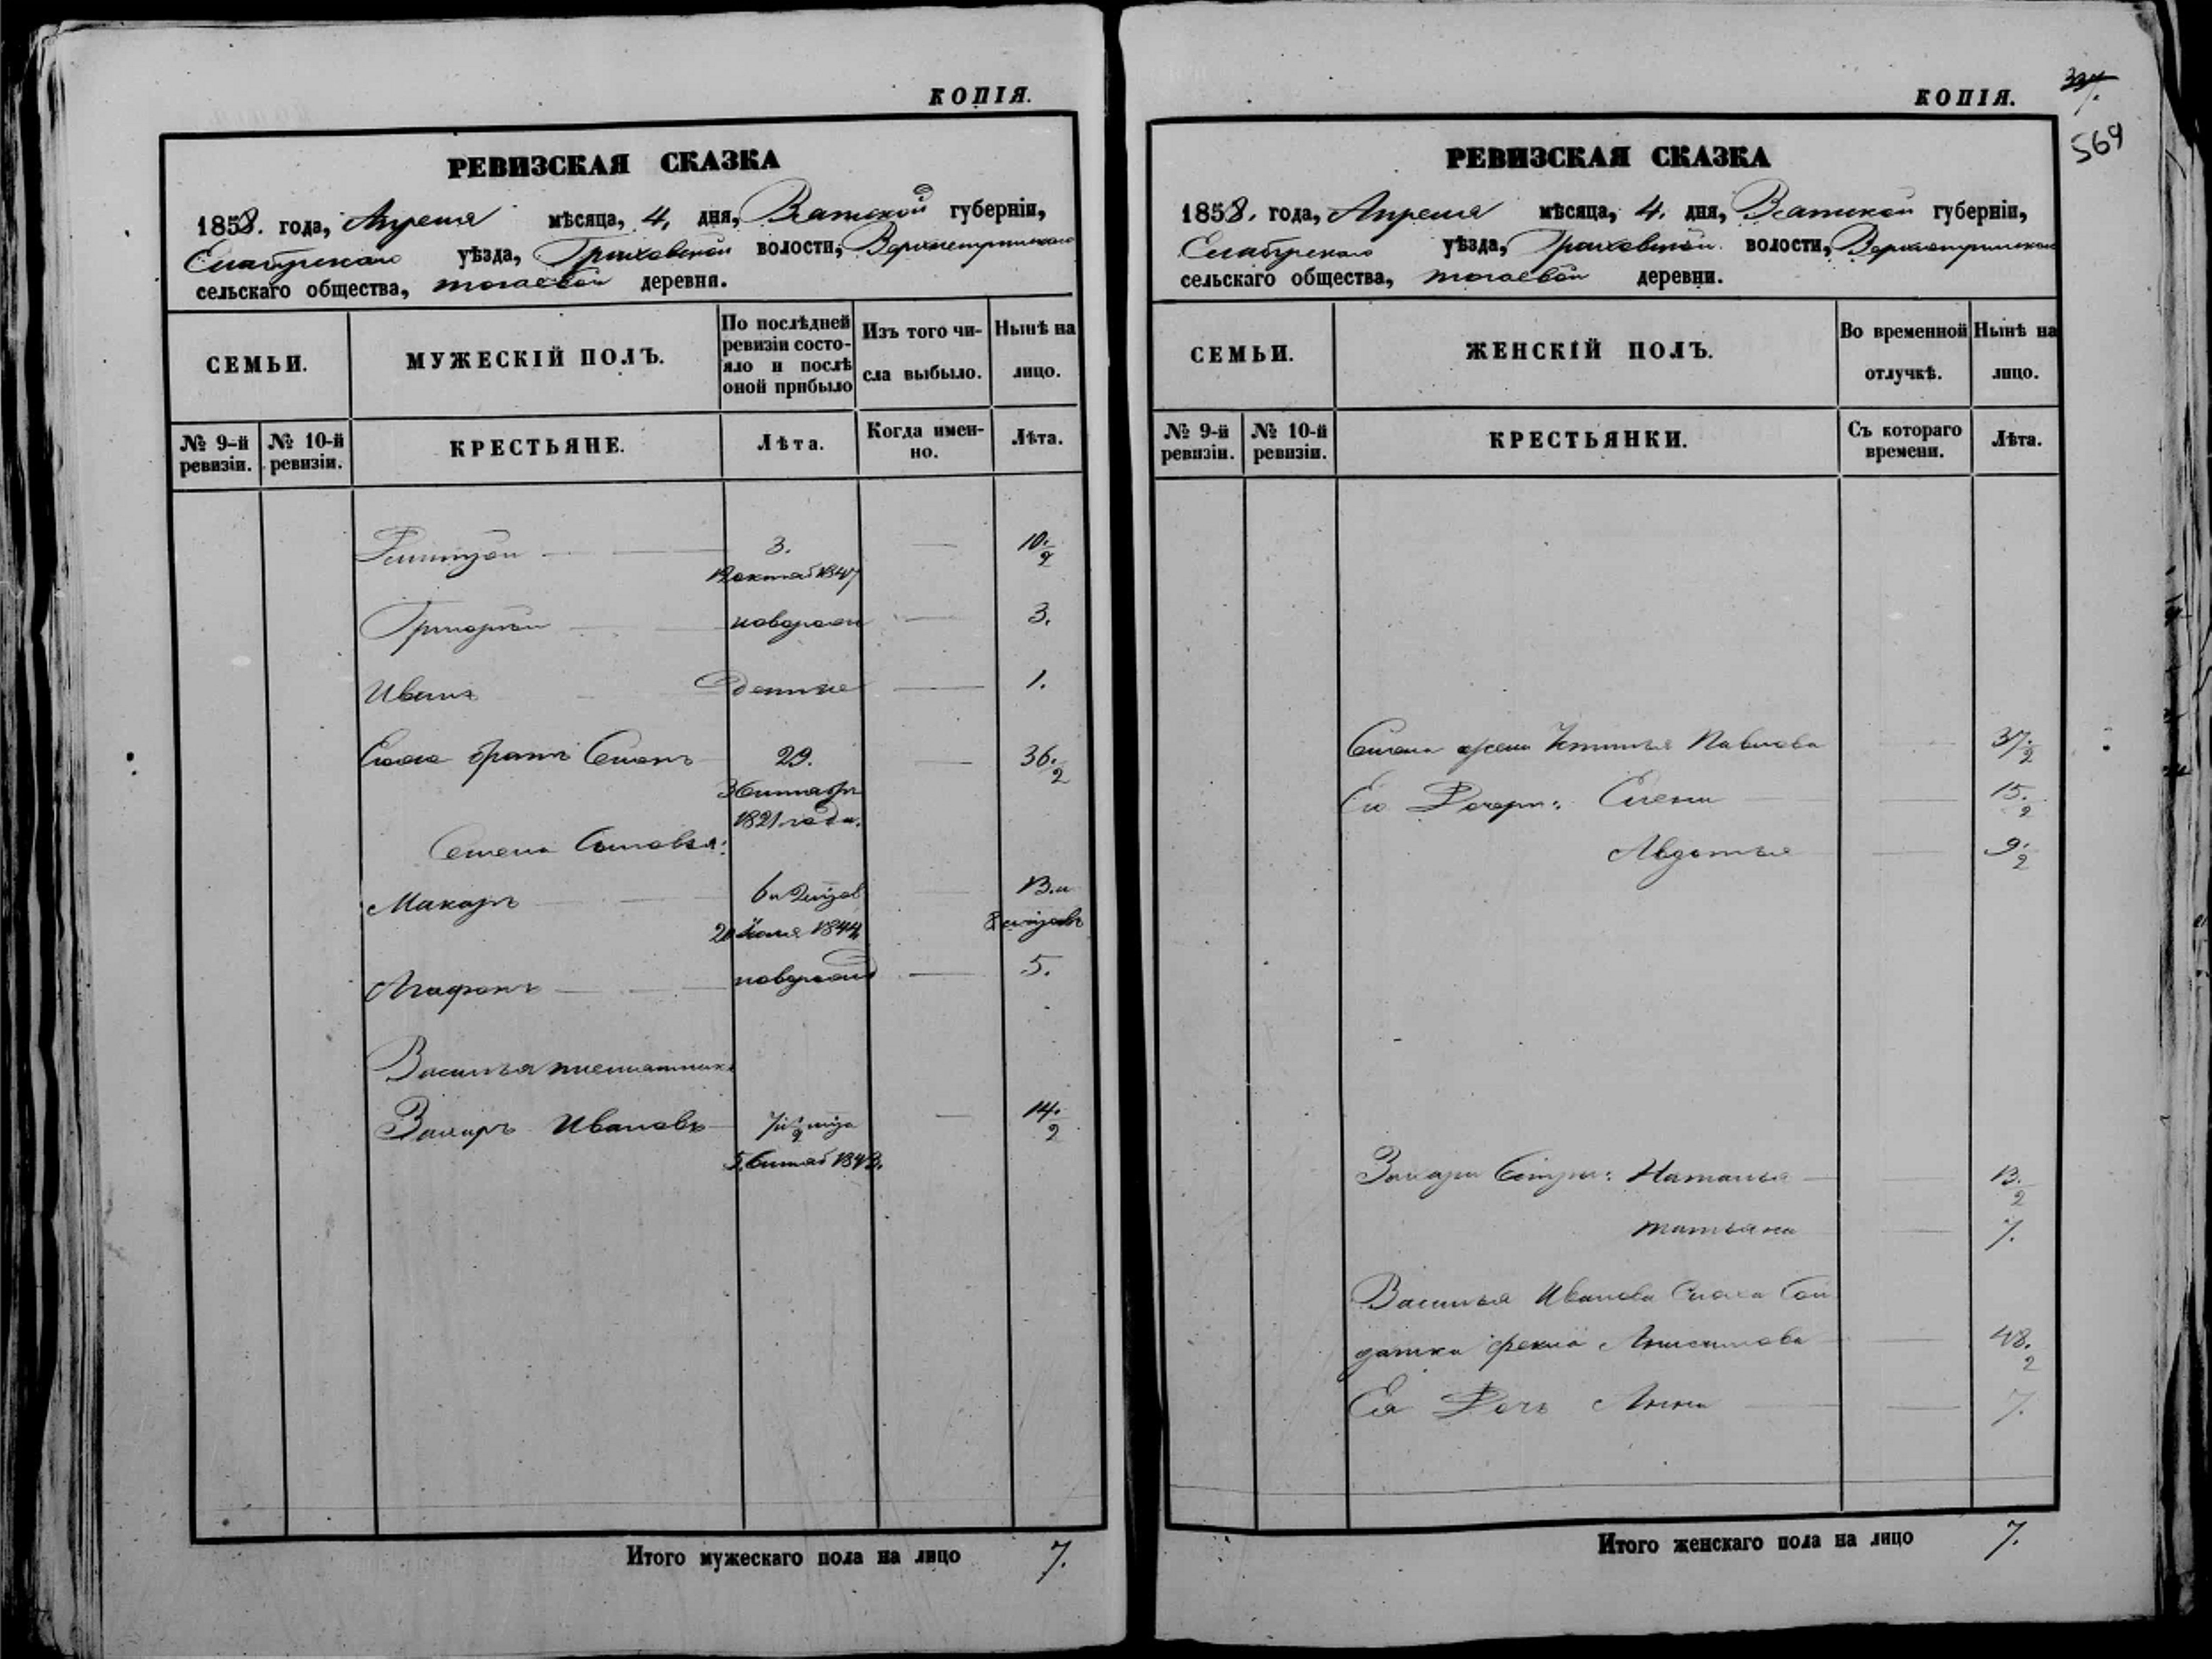 КОПІЯ.
РЕВИЗСКАЯ СКАЗКА
1858. года, Апреля мѣсяца, 4, дня, Вятской губерніи,
Елабужскаго уѣзда, Граховской волости,
сельскаго общества, деревня.
СЕМЬИ.
МУЖЕСКІЙ ПОЛЪ.
По послѣдней ревизіи состояло и послѣ оной прибыло
Изъ того числа выбыло.
Нынѣ на лицо.
№ 9-й ревизіи.
№ 10-й ревизіи.
КРЕСТЬЯНЕ.
Лѣта.
Когда именно.
Лѣта.
3. 10 1/2
Григорій новорожд 3.
Иванъ 1.
братъ Семенъ 29. 36 1/2
1821 года.
Семена Сыновья:
Макаръ 6 и 13. и
1844 8
Агафонъ новорожд 5.
Василья племянникъ
Захаръ Ивановъ 7 14 1/2
Итого мужескаго пола на лицо 7.
КОПІЯ.
569
РЕВИЗСКАЯ СКАЗКА
1858. года, Апреля мѣсяца, 4. дня, Вятской губерніи,
Елабужскаго уѣзда, Граховской волости,
сельскаго общества, деревни.
СЕМЬИ.
ЖЕНСКІЙ ПОЛЪ.
Во временной отлучкѣ.
Нынѣ на лицо.
№ 9-й ревизіи.
№ 10-й ревизіи.
КРЕСТЬЯНКИ.
Съ котораго времени.
Лѣта.
Семена жена Устинья Павлова 37 1/2
Его Дочери: Елена 15 1/2
Авдотья 9 1/2
Захара Сестры: Наталья 13 1/2
Татьяна 7.
Василья Иванова Сноха Сол
датка Фекла Анисимова 48 1/2
Ея Дочь Анна 7.
Итого женскаго пола на лицо 7.